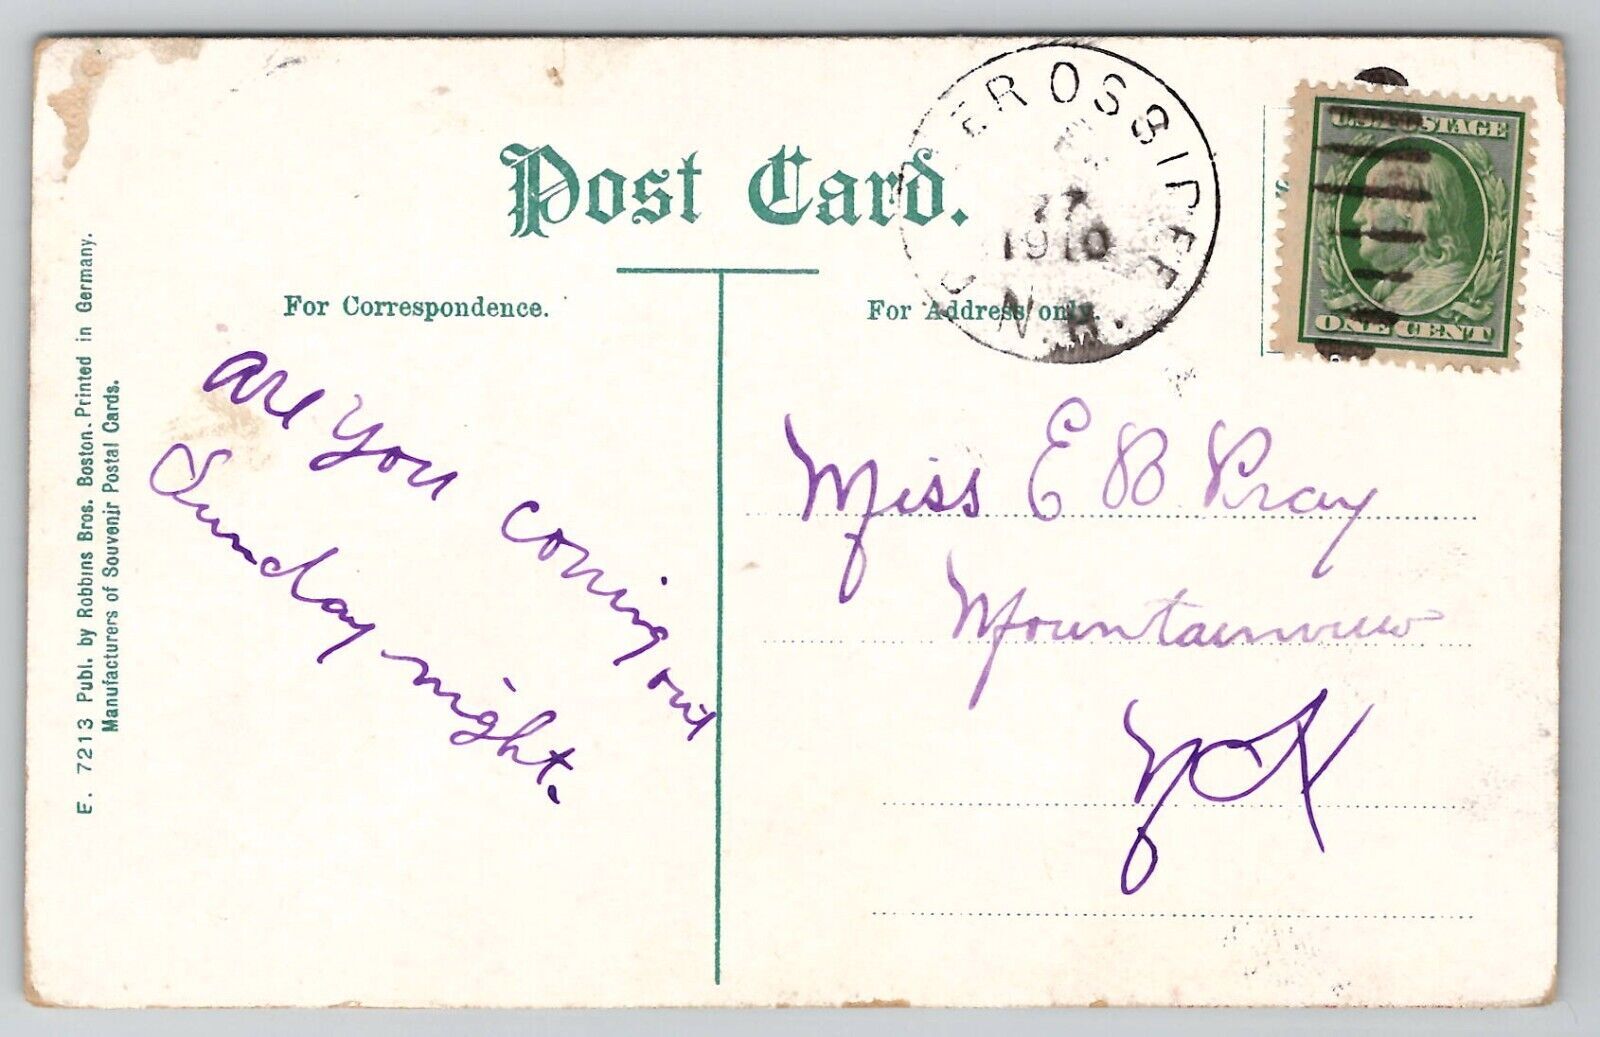 Post Card.
For Correspondence.
For Address only.
E. 7213 Publ. by Robbins Bros. Boston. Printed in Germany.
Manufacturers of Souvenir Postal Cards.
EROSSIPEE
17
1910
N.H.
U.S. POSTAGE
ONE CENT
are you coming out
Sunday night.
Miss E B Pray
Mountainview
NH